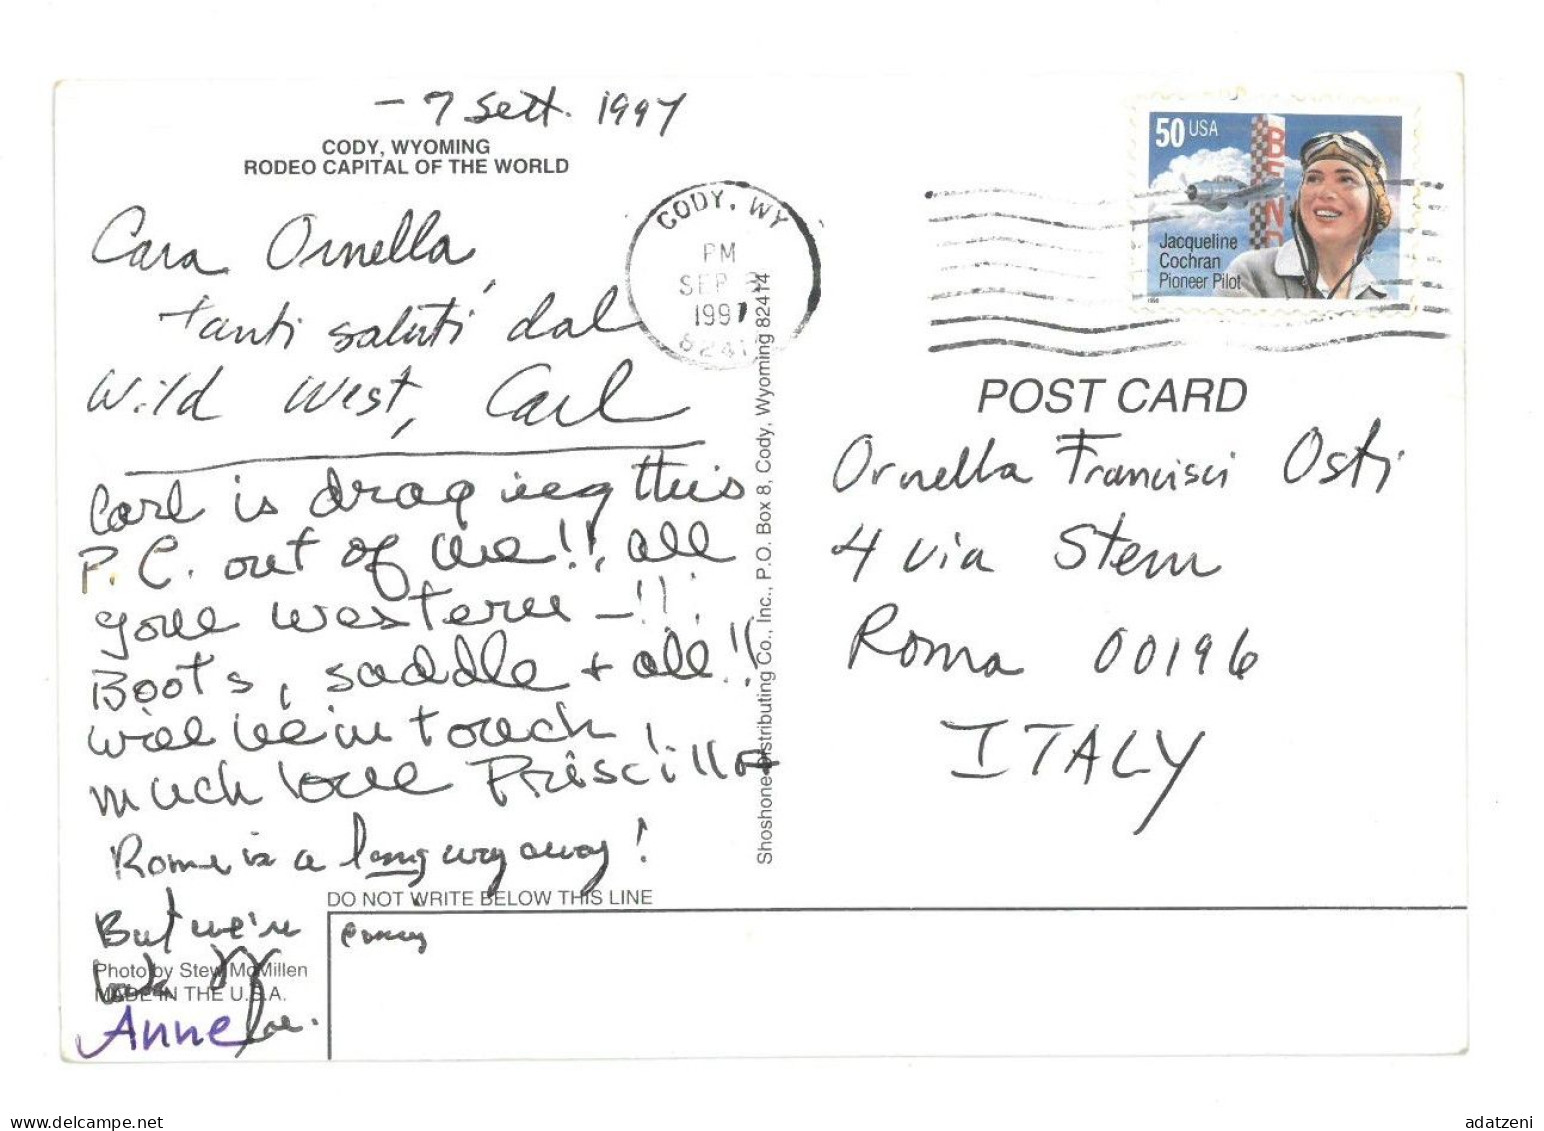 - 7 Sett. 1997
CODY, WYOMING
RODEO CAPITAL OF THE WORLD
Cara Ornella,
tanti saluti dal
Wild West, Carl
Carl is drag ing this
P.C. out of me!!, all
gone western -!!
Boots, saddle + all!!
will be in touch!
much love Priscilla
Rome is a long way away!
But we're
Photo by Stew McMillen
MADE IN THE U.S.A.
Anne
DO NOT WRITE BELOW THIS LINE
Shoshone Distributing Co., Inc., P.O. Box 8, Cody, Wyoming 82414
CODY, WY
PM
SEP
1997
50 USA
Jacqueline
Cochran
Pioneer Pilot
POST CARD
Ornella Francisci Osti
4 via Stern
Roma 00196
ITALY
adatzeni